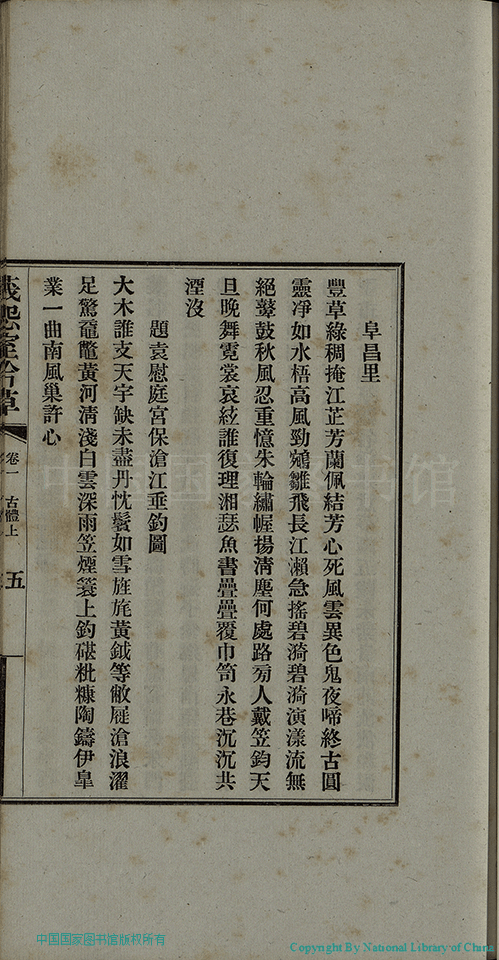 阜昌里
豐草綠稠掩江芷芳蘭佩結芳心死風雲異色鬼夜啼終古圓
靈淨如水梧高風勁鵷雛飛長江瀨急搖碧漪碧漪演漾流無
絕鼙鼓秋風忍重憶朱輪繡幄揚清塵何處路旁人戴笠鈞天
旦晚舞霓裳哀絃誰復理湘瑟魚書疊疊覆巾笥永巷沉沉共
湮沒
題袁慰庭宮保滄江垂釣圖
大木誰支天宇缺未盡丹忱鬢如雪旌旄黃鉞等敝屣滄浪濯
足驚黿鼈黃河清淺白雲深雨笠煙簑上釣磯粃糠陶鑄伊皐
業一曲南風巢許心
室吟草
卷一 古體上
五
中国国家图书馆
中国国家图书馆版权所有
Copyright By National Library of China